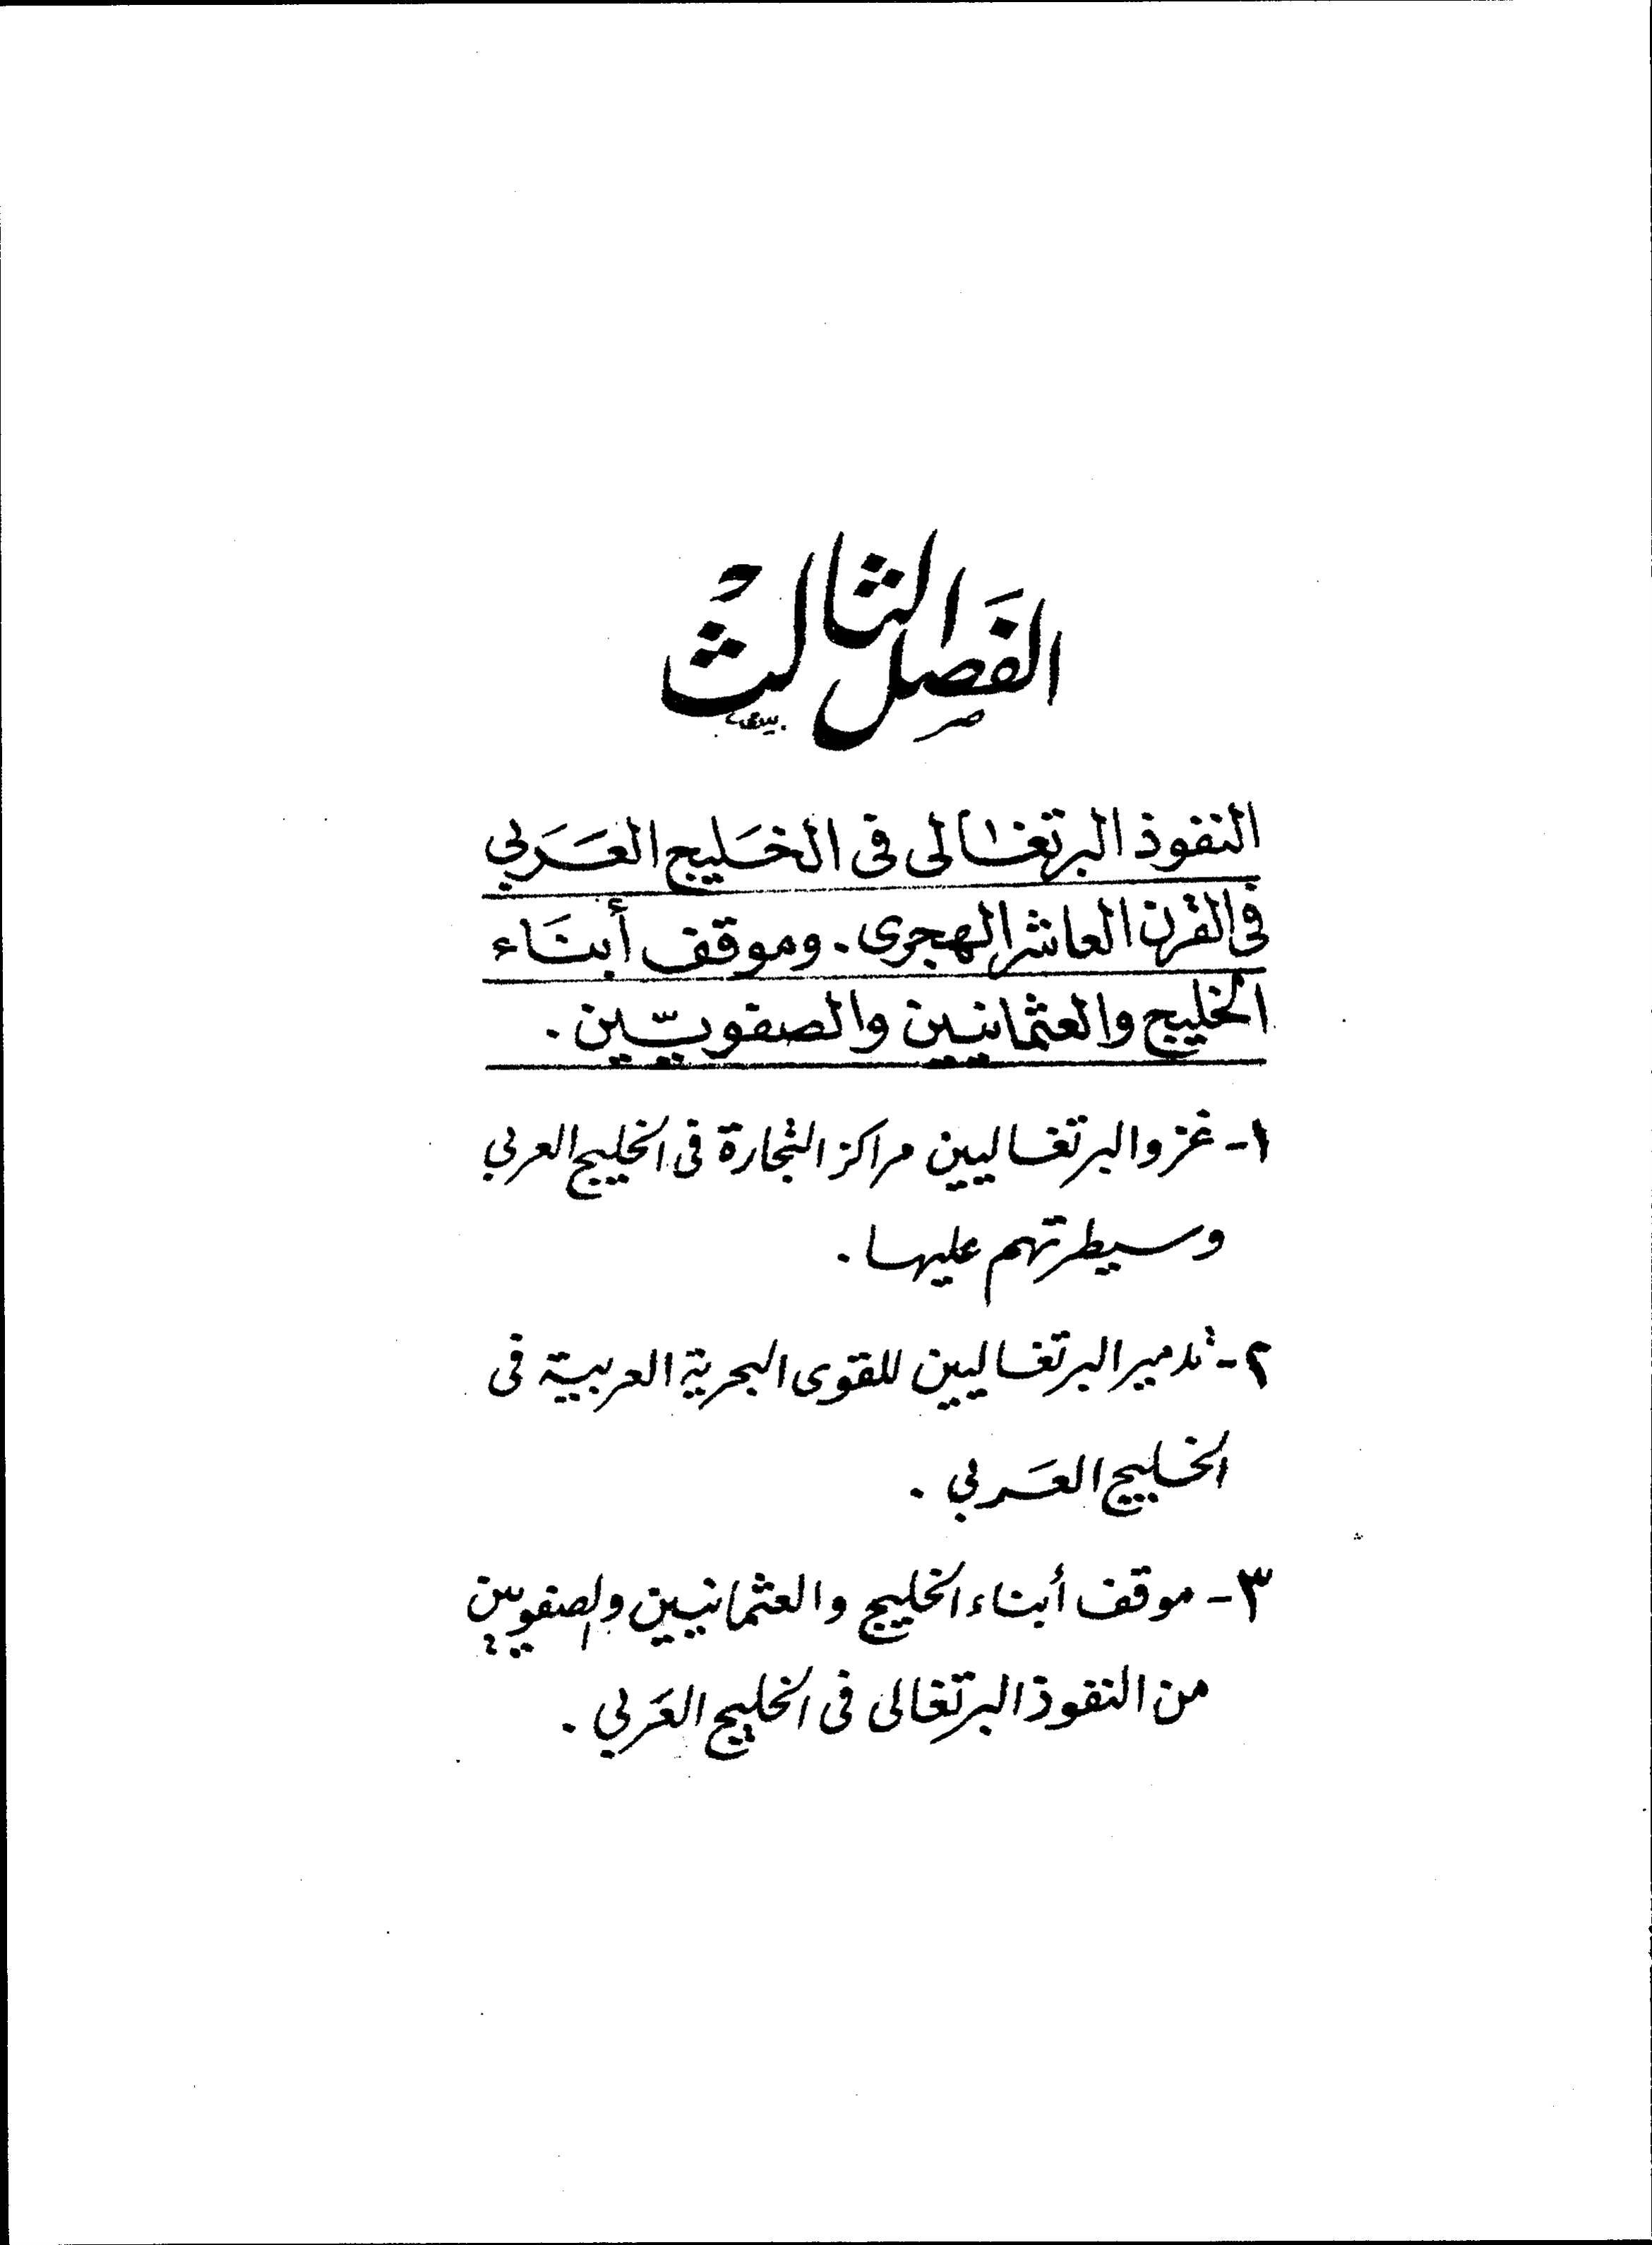 الفَصل الثالثُ
النفوذ البرتغالى فى الخَليج العَرَبي
فى القرن العاشر الهجرى . وموقف أبنَاء
الخليج والعثمانيين والصفويّين .
١- غزو البرتغاليين مراكز التجارة فى الخليج العربي
وسيطرتهم عليها .
٢- تدمير البرتغاليين للقوى البحرية العربية فى
الخليج العَربي .
٣- موقف أبناء الخليج والعثمانيين والصفويين
من النفوذ البرتغالى فى الخليج العَربي .